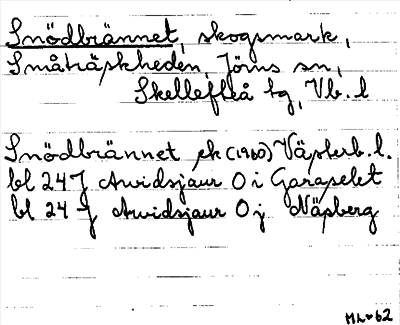 Snödbrännet, skogsmark,
Småträskheden, Jörns sn,
Skellefteå tg, Vb. l
Snödbrännet ek (1960) Västerb. l.
bl 24 J Arvidsjaur O i Garaselet
bl 24 J Arvidsjaur O j Näsberg
ML 62